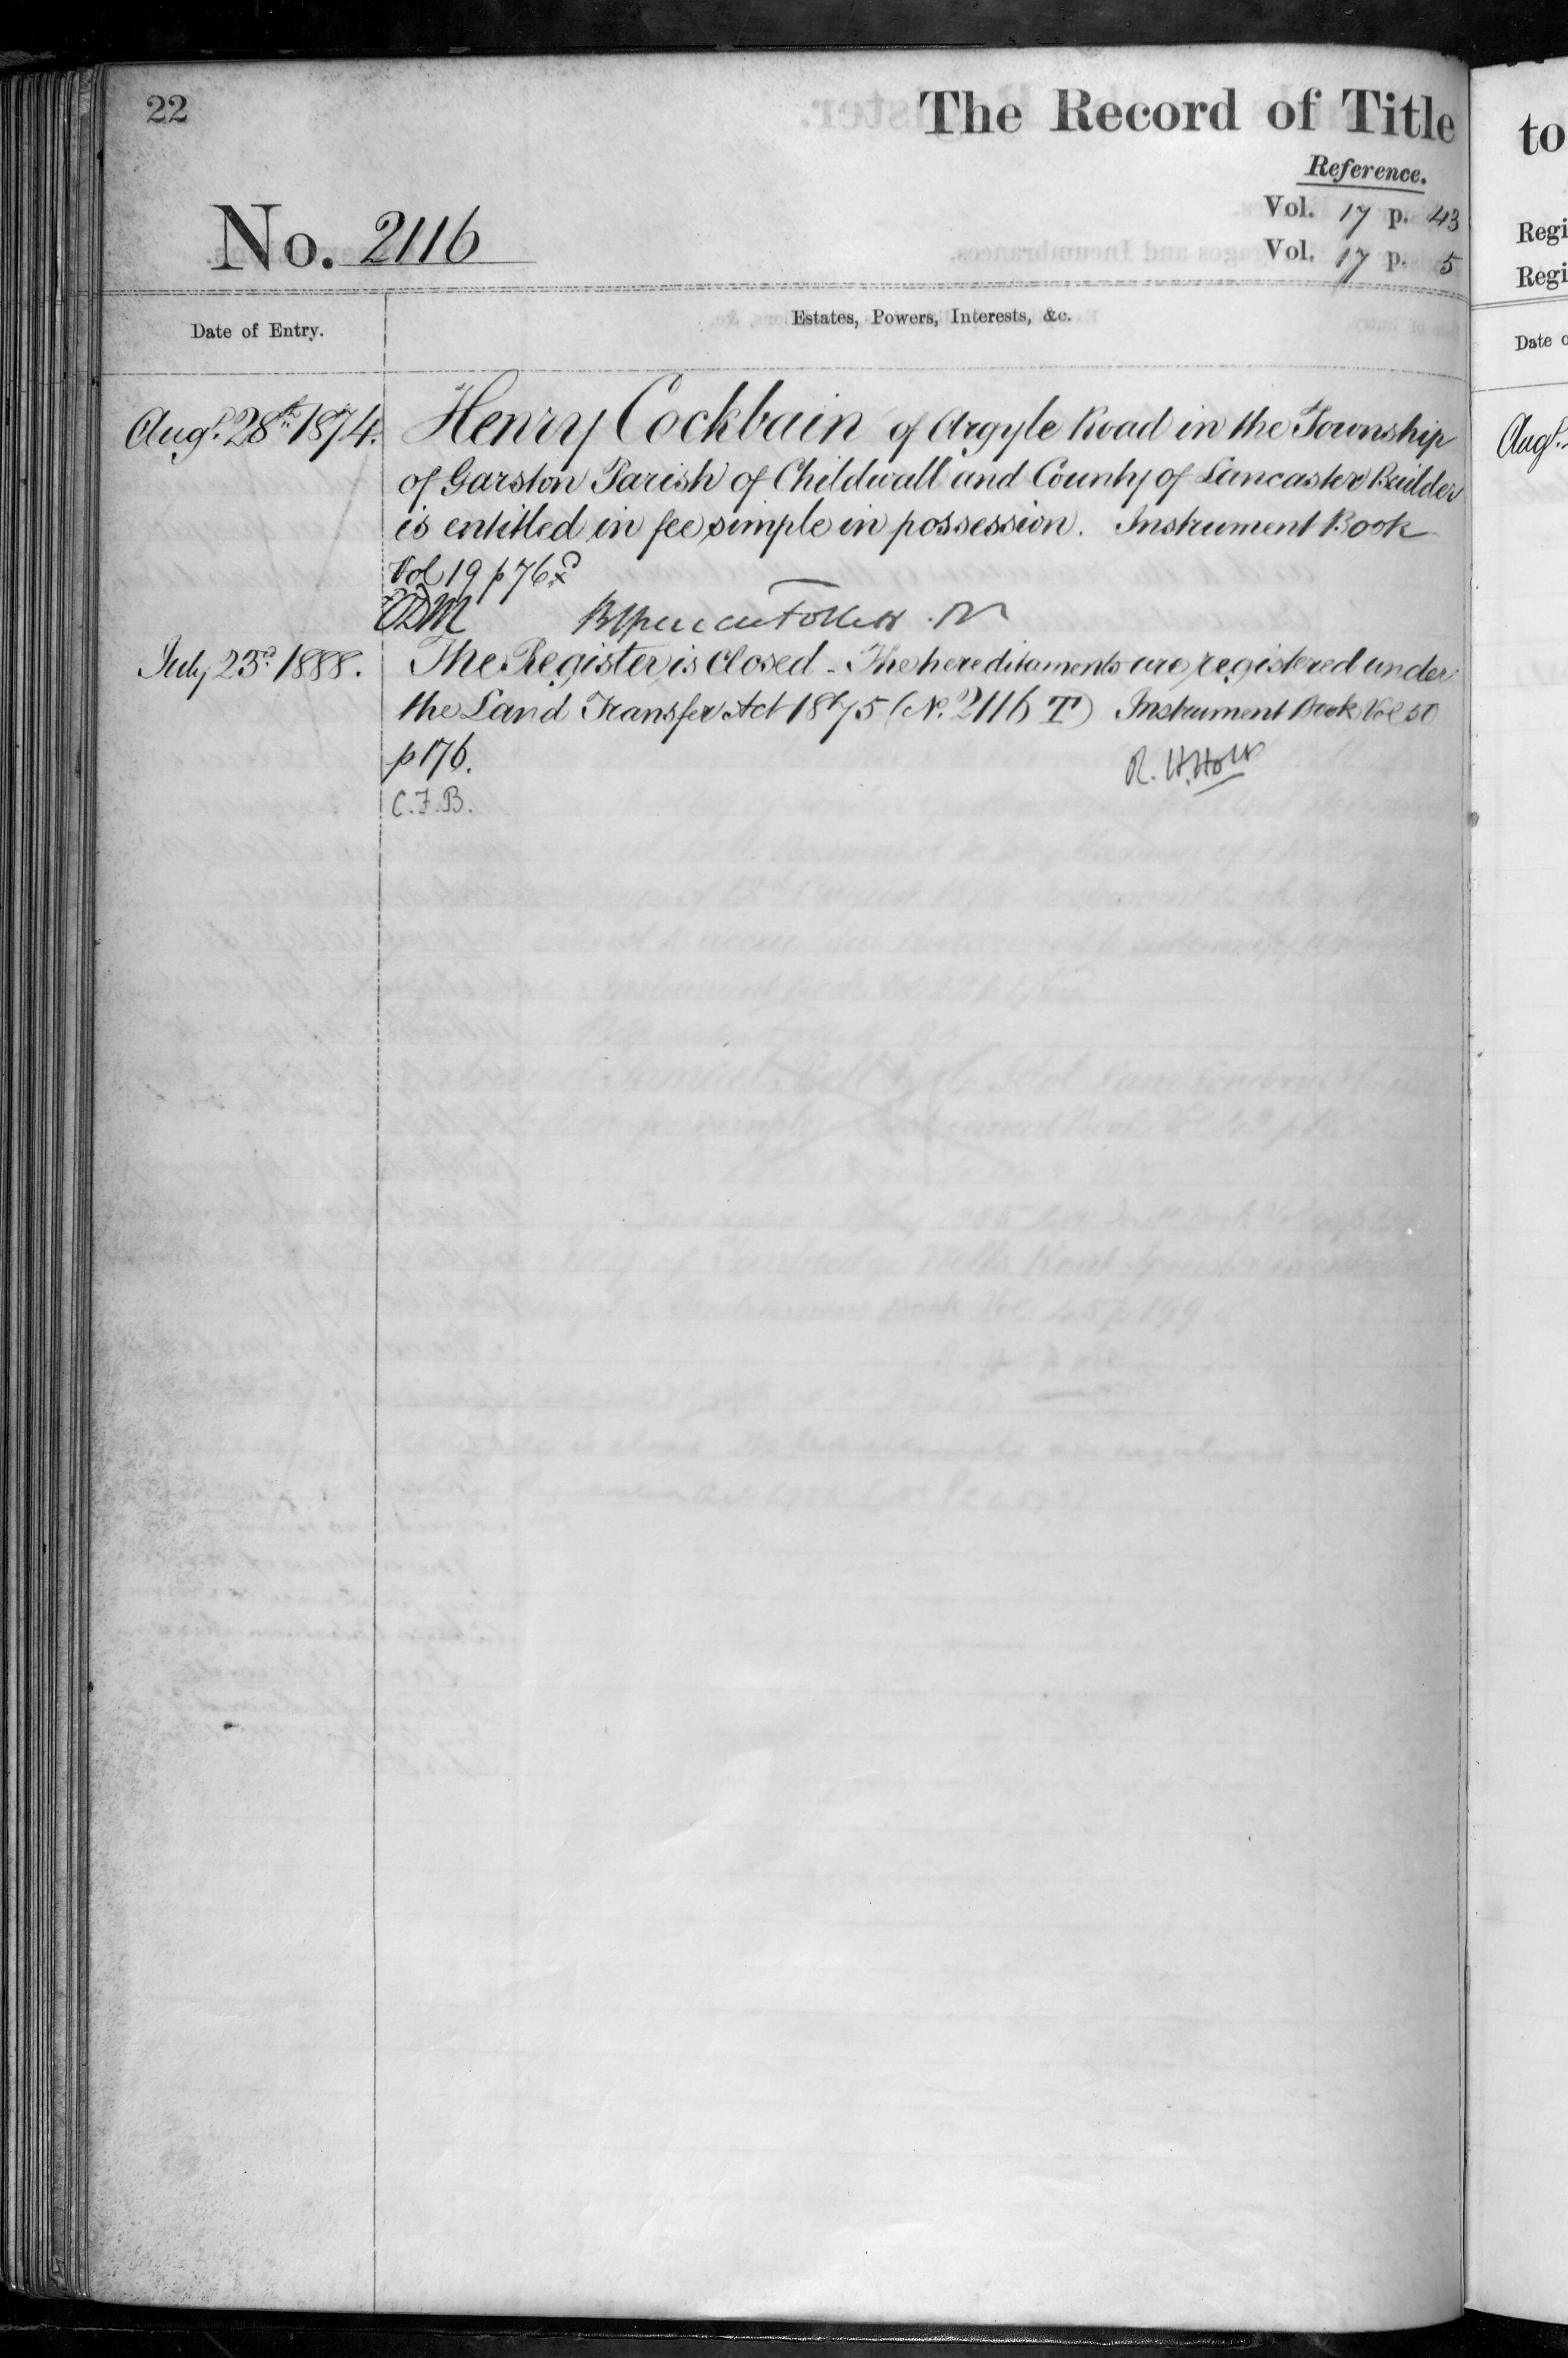 22
The Record of Title
Reference.
Vol. 17 p. 43
No. 2116
Vol. 17 p. 5
Date of Entry.
Estates, Powers, Interests, &c.
Augt. 28th 1874. Henry Cockbain of Argyle Road in the Township
of Garston Parish of Childwall and County of Lancaster Builder
is entitled in fee simple in possession. Instrument Book
Vol 19 p 76
July 23rd 1888. The Register is closed - The hereditaments are registered under
the Land Transfer Act 1875 (No. 2116 T) Instrument Book Vol 50
p 176.
R. H. Holt
C.F.B.
to
Regi
Regi
Date o
Augt.